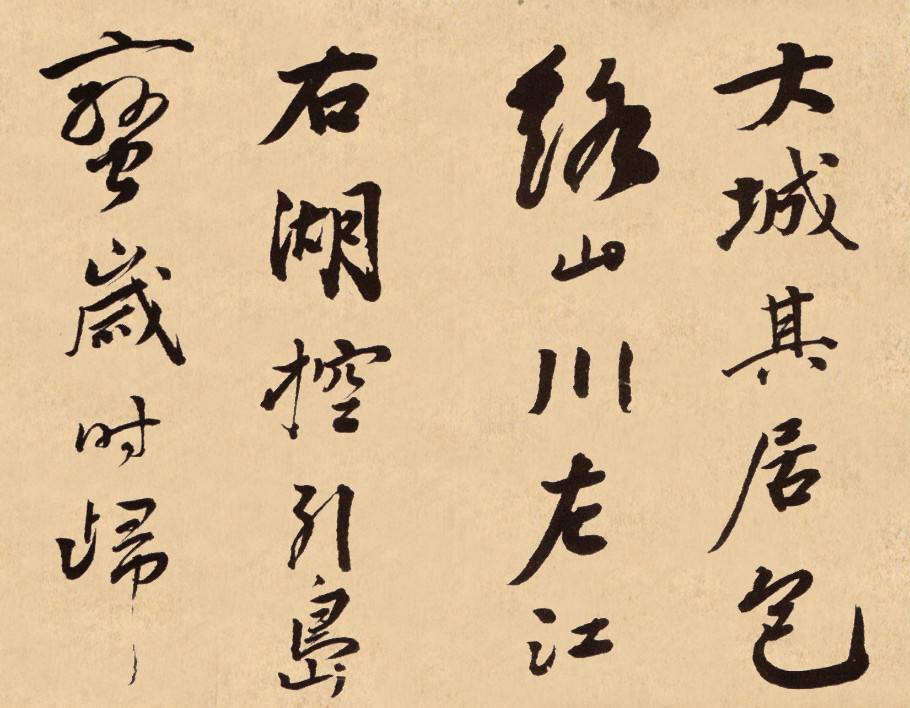 大城其居包
絡山川左江
右湖控引島
蠻歲时歸